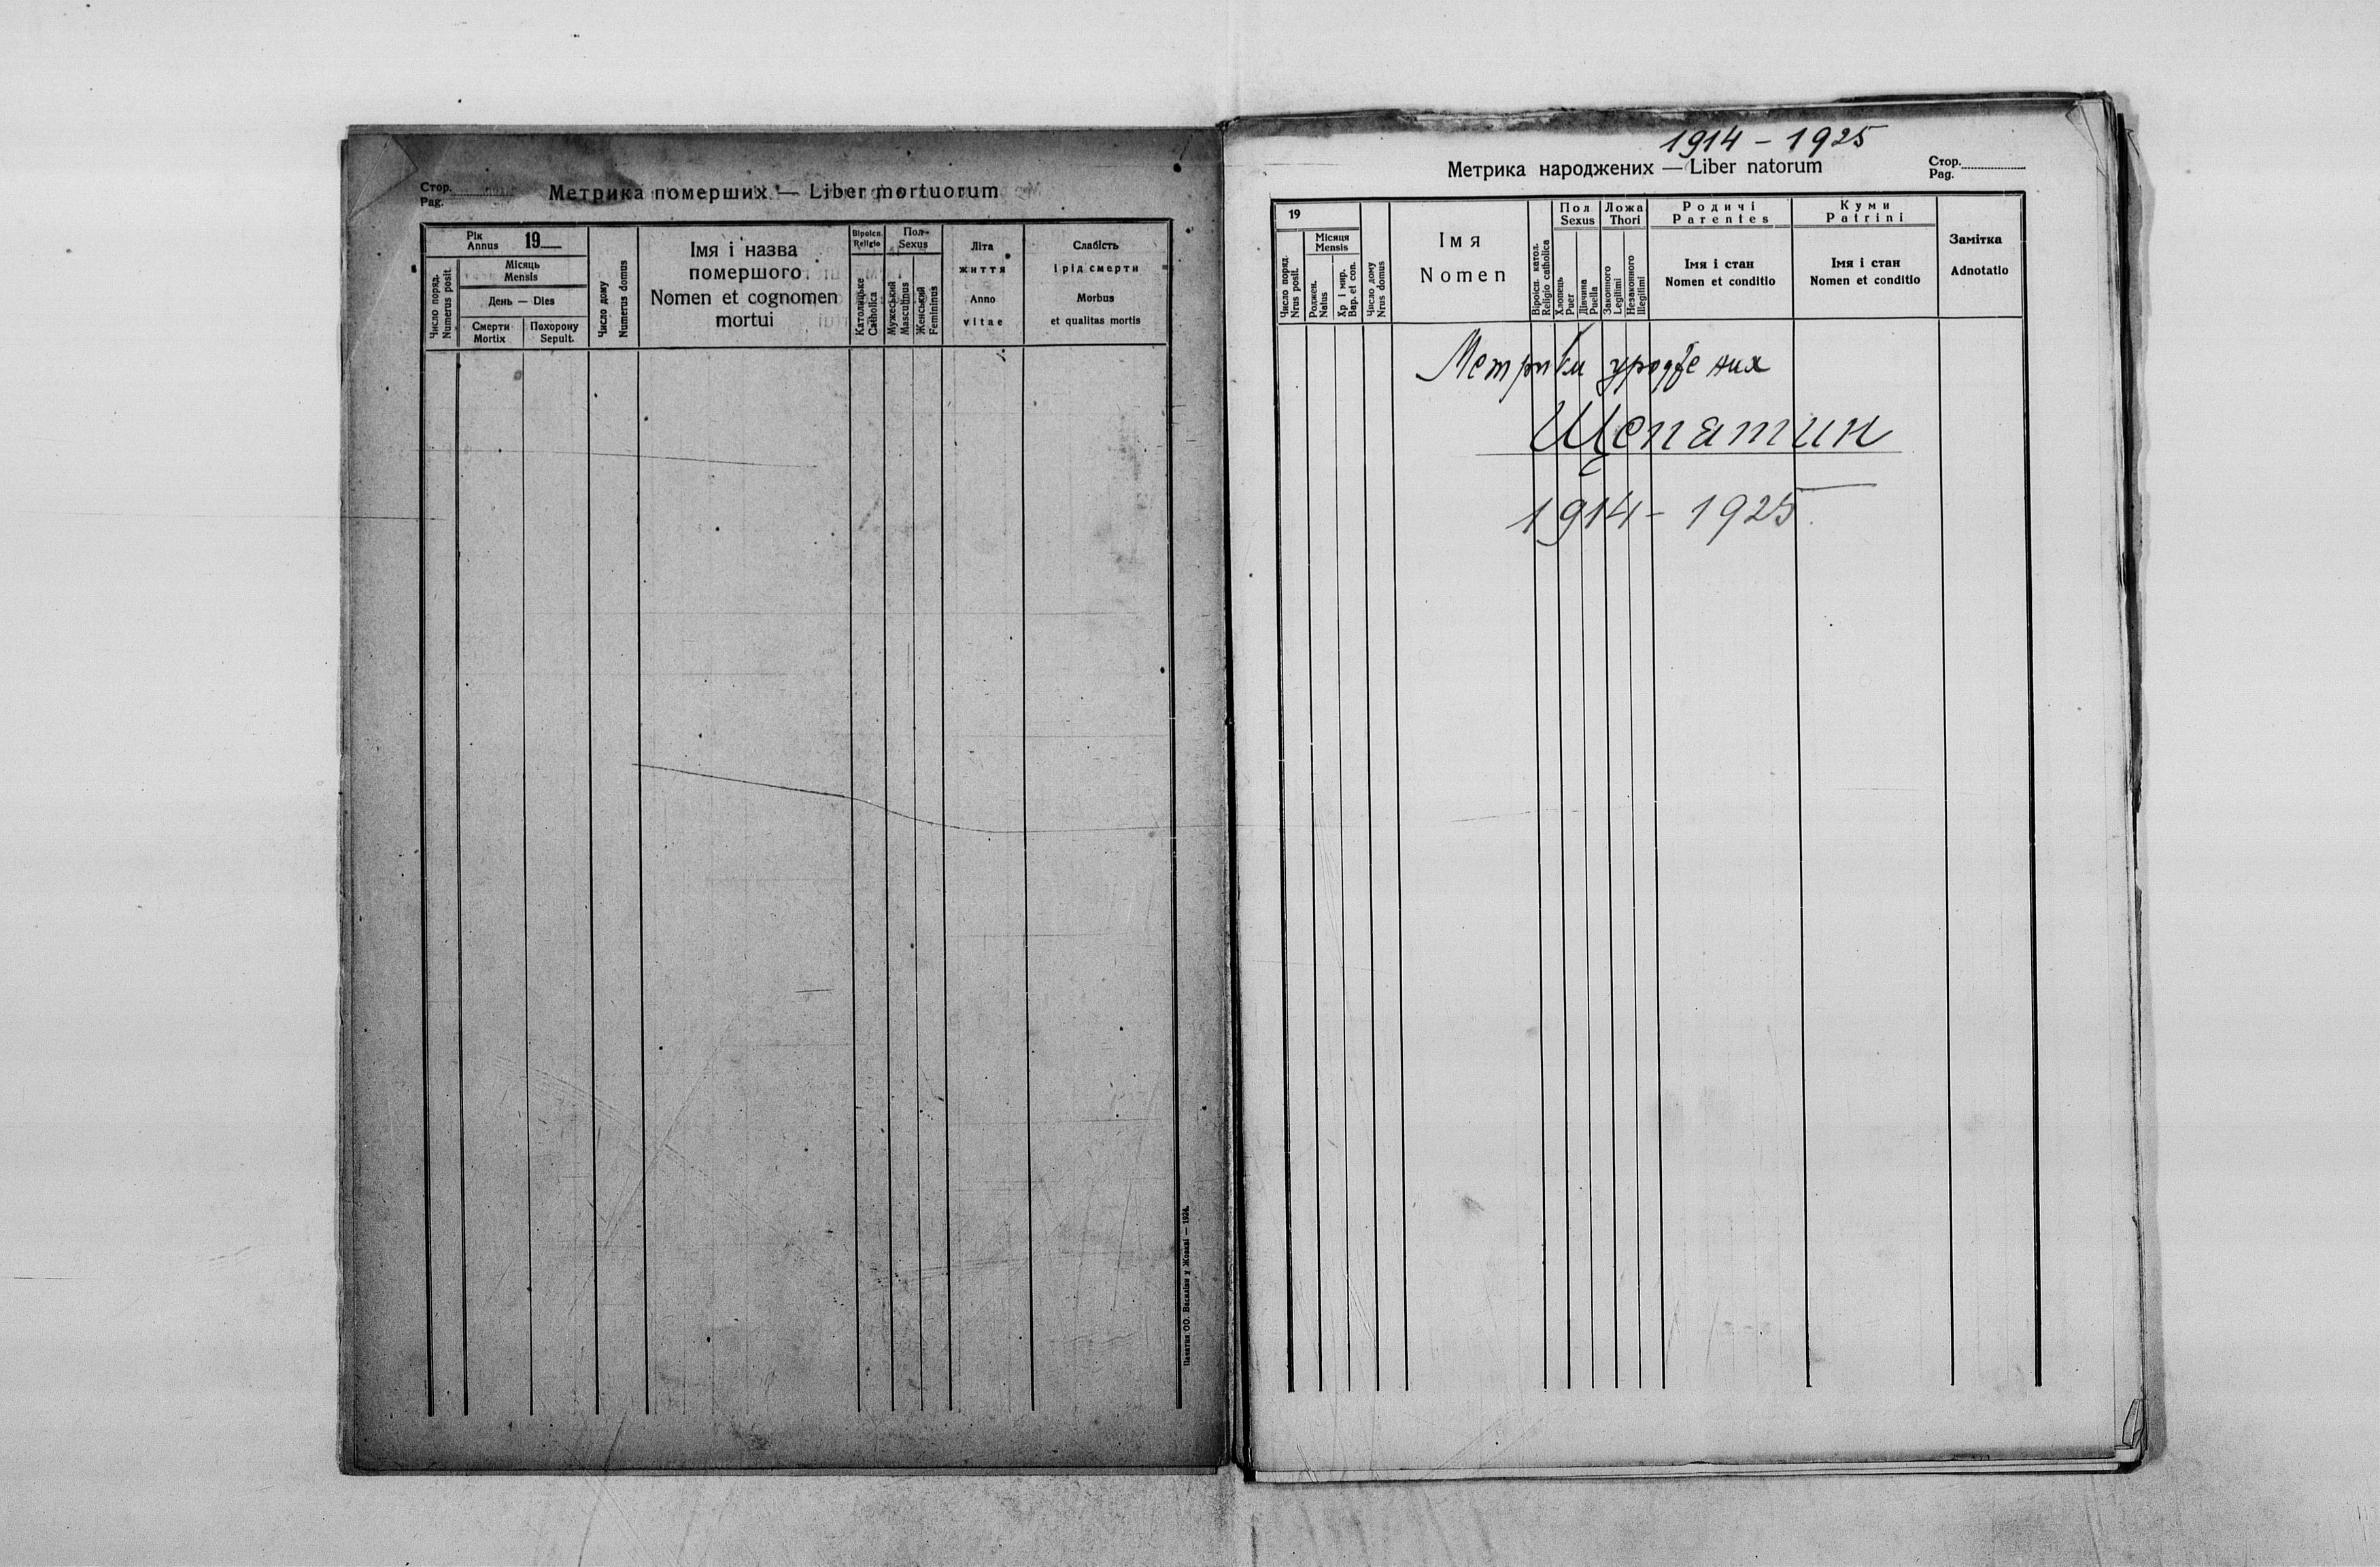 Стор.
Pag.
Метрика померших — Liber mortuorum
Рік
Annus 19
Місяць
Mensis
День — Dies
Число поряд.
Numerus posit.
Смерти
Mortix
Похорону
Sepult.
Число дому
Numerus domus
Імя і назва
помершого
Nomen et cognomen
mortui
Віроісп.
Religio
Католицьке
Catholica
Пол
Sexus
Мужеський
Masculinus
Женський
Femininus
Літа
життя
Anno
vitae
Слабість
і рід смерти
Morbus
et qualitas mortis
Печатня ОО. Василіян у Жовкві — 1924.
1914 - 1925
Метрика народжених — Liber natorum
Стор.
Pag.
19
Число поряд.
Nrus posit.
Місяця
Mensis
Роджен.
Natus
Хр і мир.
Bap. et con.
Число дому
Nrus domus
Імя
Nomen
Віроісп. катол.
Religio catholica
Пол
Sexus
Хлопець
Puer
Дівчина
Puella
Ложа
Thori
Законного
Legitimi
Незаконного
Illegitimi
Родичі
Parentes
Імя і стан
Nomen et conditio
Куми
Patrini
Імя і стан
Nomen et conditio
Замітка
Adnotatio
Метрики
Щепатин
1914 - 1925.